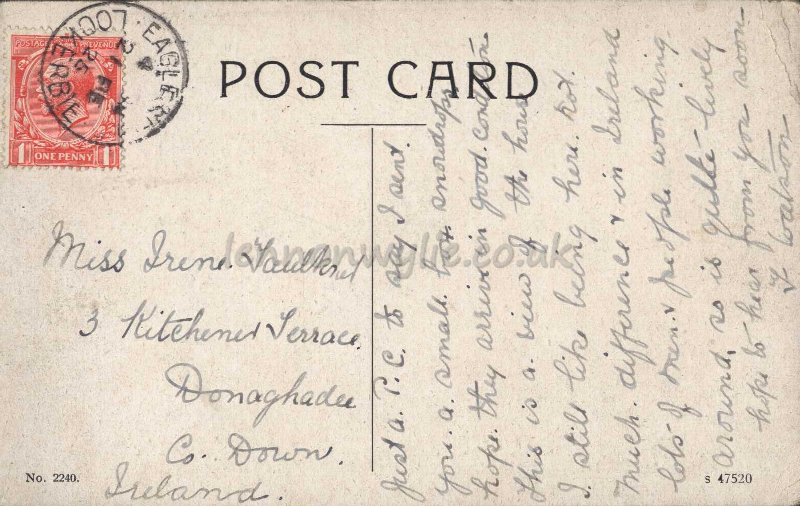 POST CARD
POSTAGE REVENUE
ONE PENNY
1 1
LOCKERBIE
Miss Irene Faulkner
3 Kitchener Terrace
Donaghadee
Co. Down.
Ireland.
Just a. P.C. to say I sent
you a small box snowdrops
hope they arrive in good condition
This is a view of the house
I still like being here. not
much difference & in Ireland
lots of men & people working
around, so is quite lively
hope to hear from you soon
I Watson
No. 2240.
S 47520
lennonwylie.co.uk